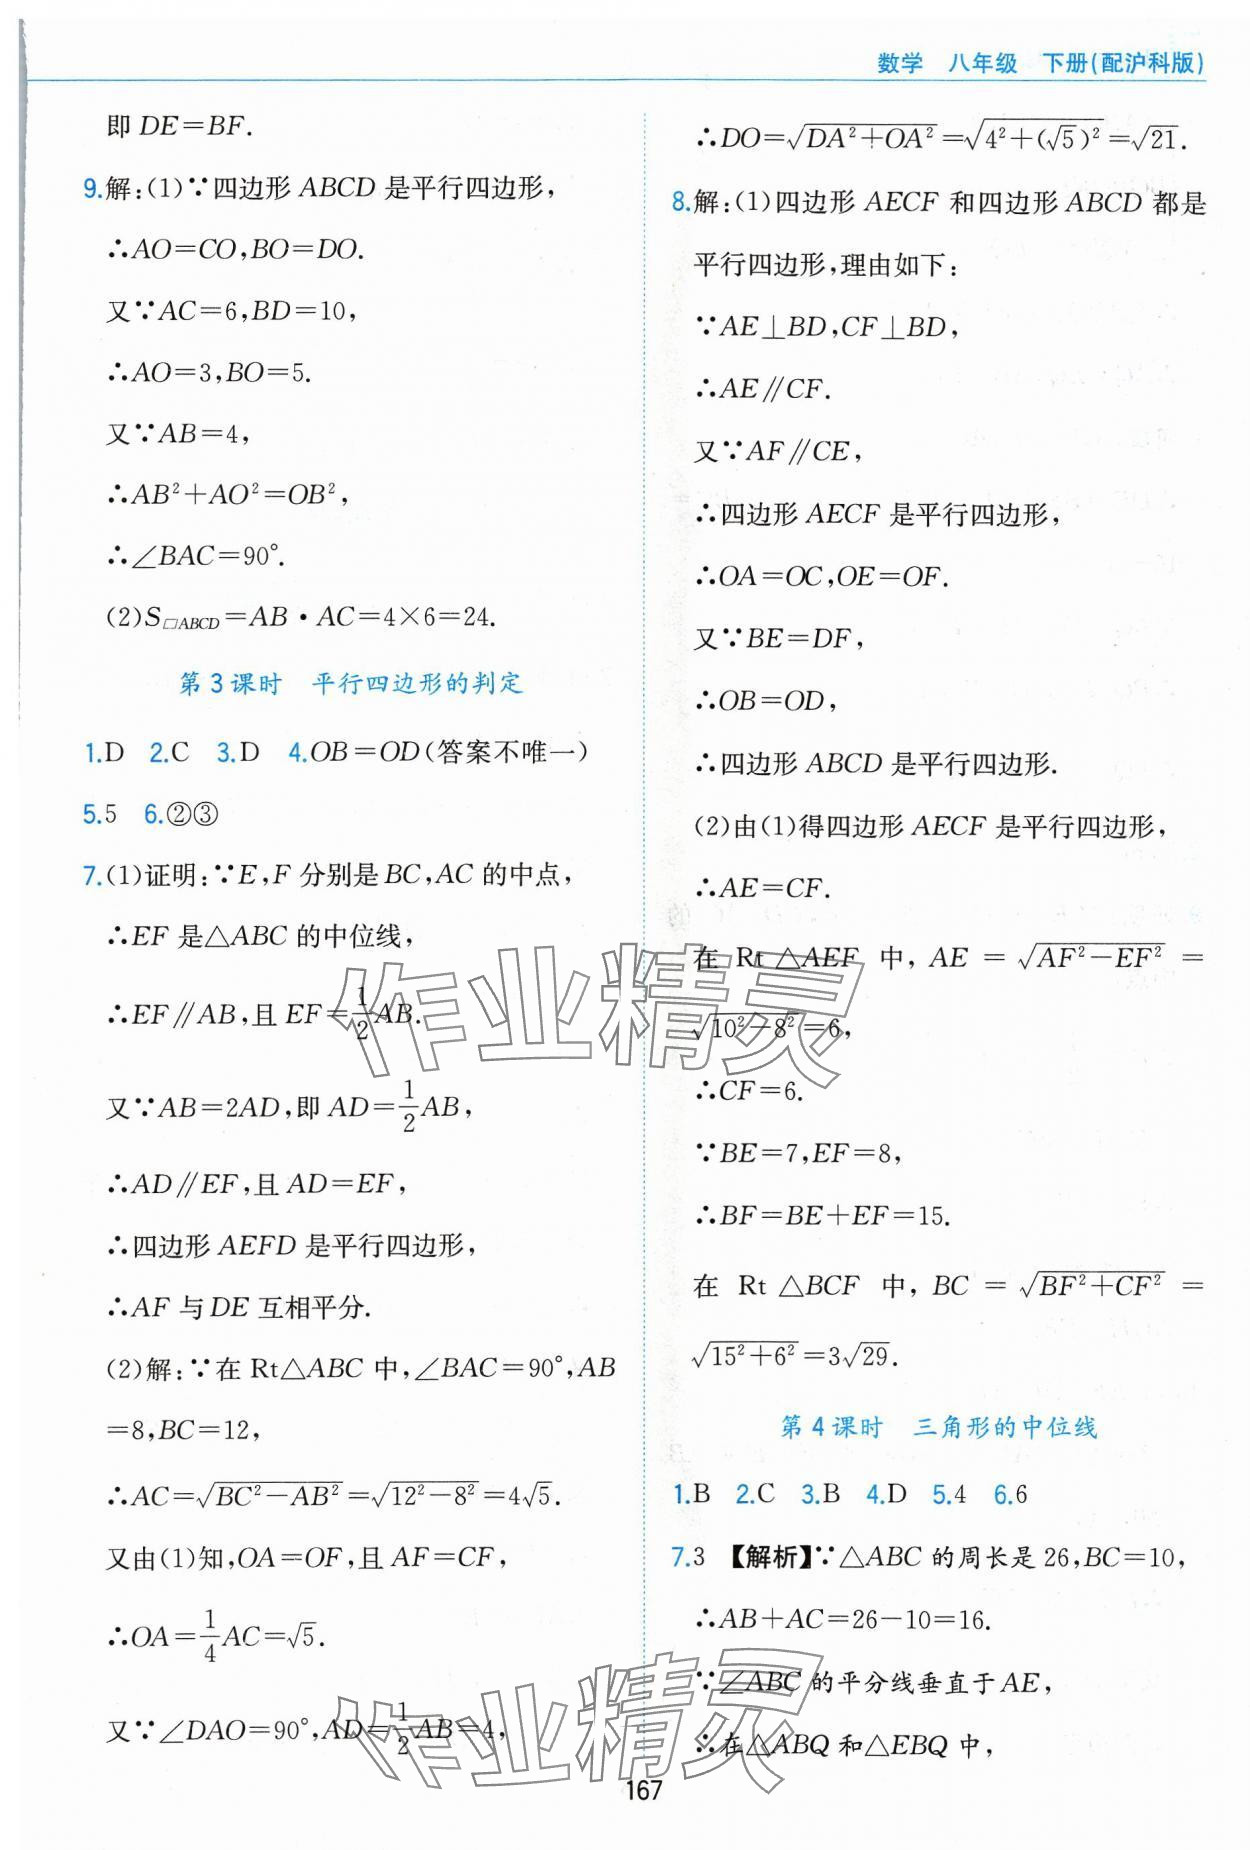 数学 八年级 下册(配沪科版)
即 DE=BF.
9.解:(1)∵四边形 ABCD 是平行四边形,
∴AO=CO,BO=DO.
又∵AC=6,BD=10,
∴AO=3,BO=5.
又∵AB=4,
∴AB²+AO²=OB²,
∴∠BAC=90°.
(2)S▱ABCD=AB·AC=4×6=24.
第3课时 平行四边形的判定
1.D 2.C 3.D 4.OB=OD(答案不唯一)
5.5 6.②③
7.(1)证明:∵E,F 分别是 BC,AC 的中点,
∴EF 是△ABC 的中位线,
∴EF∥AB,且 EF=1/2AB.
又∵AB=2AD,即 AD=1/2AB,
∴AD∥EF,且 AD=EF,
∴四边形 AEFD 是平行四边形,
∴AF 与 DE 互相平分.
(2)解:∵在 Rt△ABC 中,∠BAC=90°,AB
=8,BC=12,
∴AC=√(BC²-AB²)=√(12²-8²)=4√5.
又由(1)知,OA=OF,且 AF=CF,
∴OA=1/4AC=√5.
又∵∠DAO=90°,AD=1/2AB=4,
∴DO=√(DA²+OA²)=√(4²+(√5)²)=√21.
8.解:(1)四边形 AECF 和四边形 ABCD 都是
平行四边形,理由如下:
∵AE⊥BD,CF⊥BD,
∴AE∥CF.
又∵AF∥CE,
∴四边形 AECF 是平行四边形,
∴OA=OC,OE=OF.
又∵BE=DF,
∴OB=OD,
∴四边形 ABCD 是平行四边形.
(2)由(1)得四边形 AECF 是平行四边形,
∴AE=CF.
在 Rt△AEF 中,AE=√(AF²-EF²)=
√(10²-8²)=6,
∴CF=6.
∵BE=7,EF=8,
∴BF=BE+EF=15.
在 Rt△BCF 中,BC=√(BF²+CF²)=
√(15²+6²)=3√29.
第4课时 三角形的中位线
1.B 2.C 3.B 4.D 5.4 6.6
7.3 【解析】∵△ABC 的周长是 26,BC=10,
∴AB+AC=26-10=16.
∵∠ABC 的平分线垂直于 AE,
∴在△ABQ 和△EBQ 中,
作业精灵
作业精灵
167